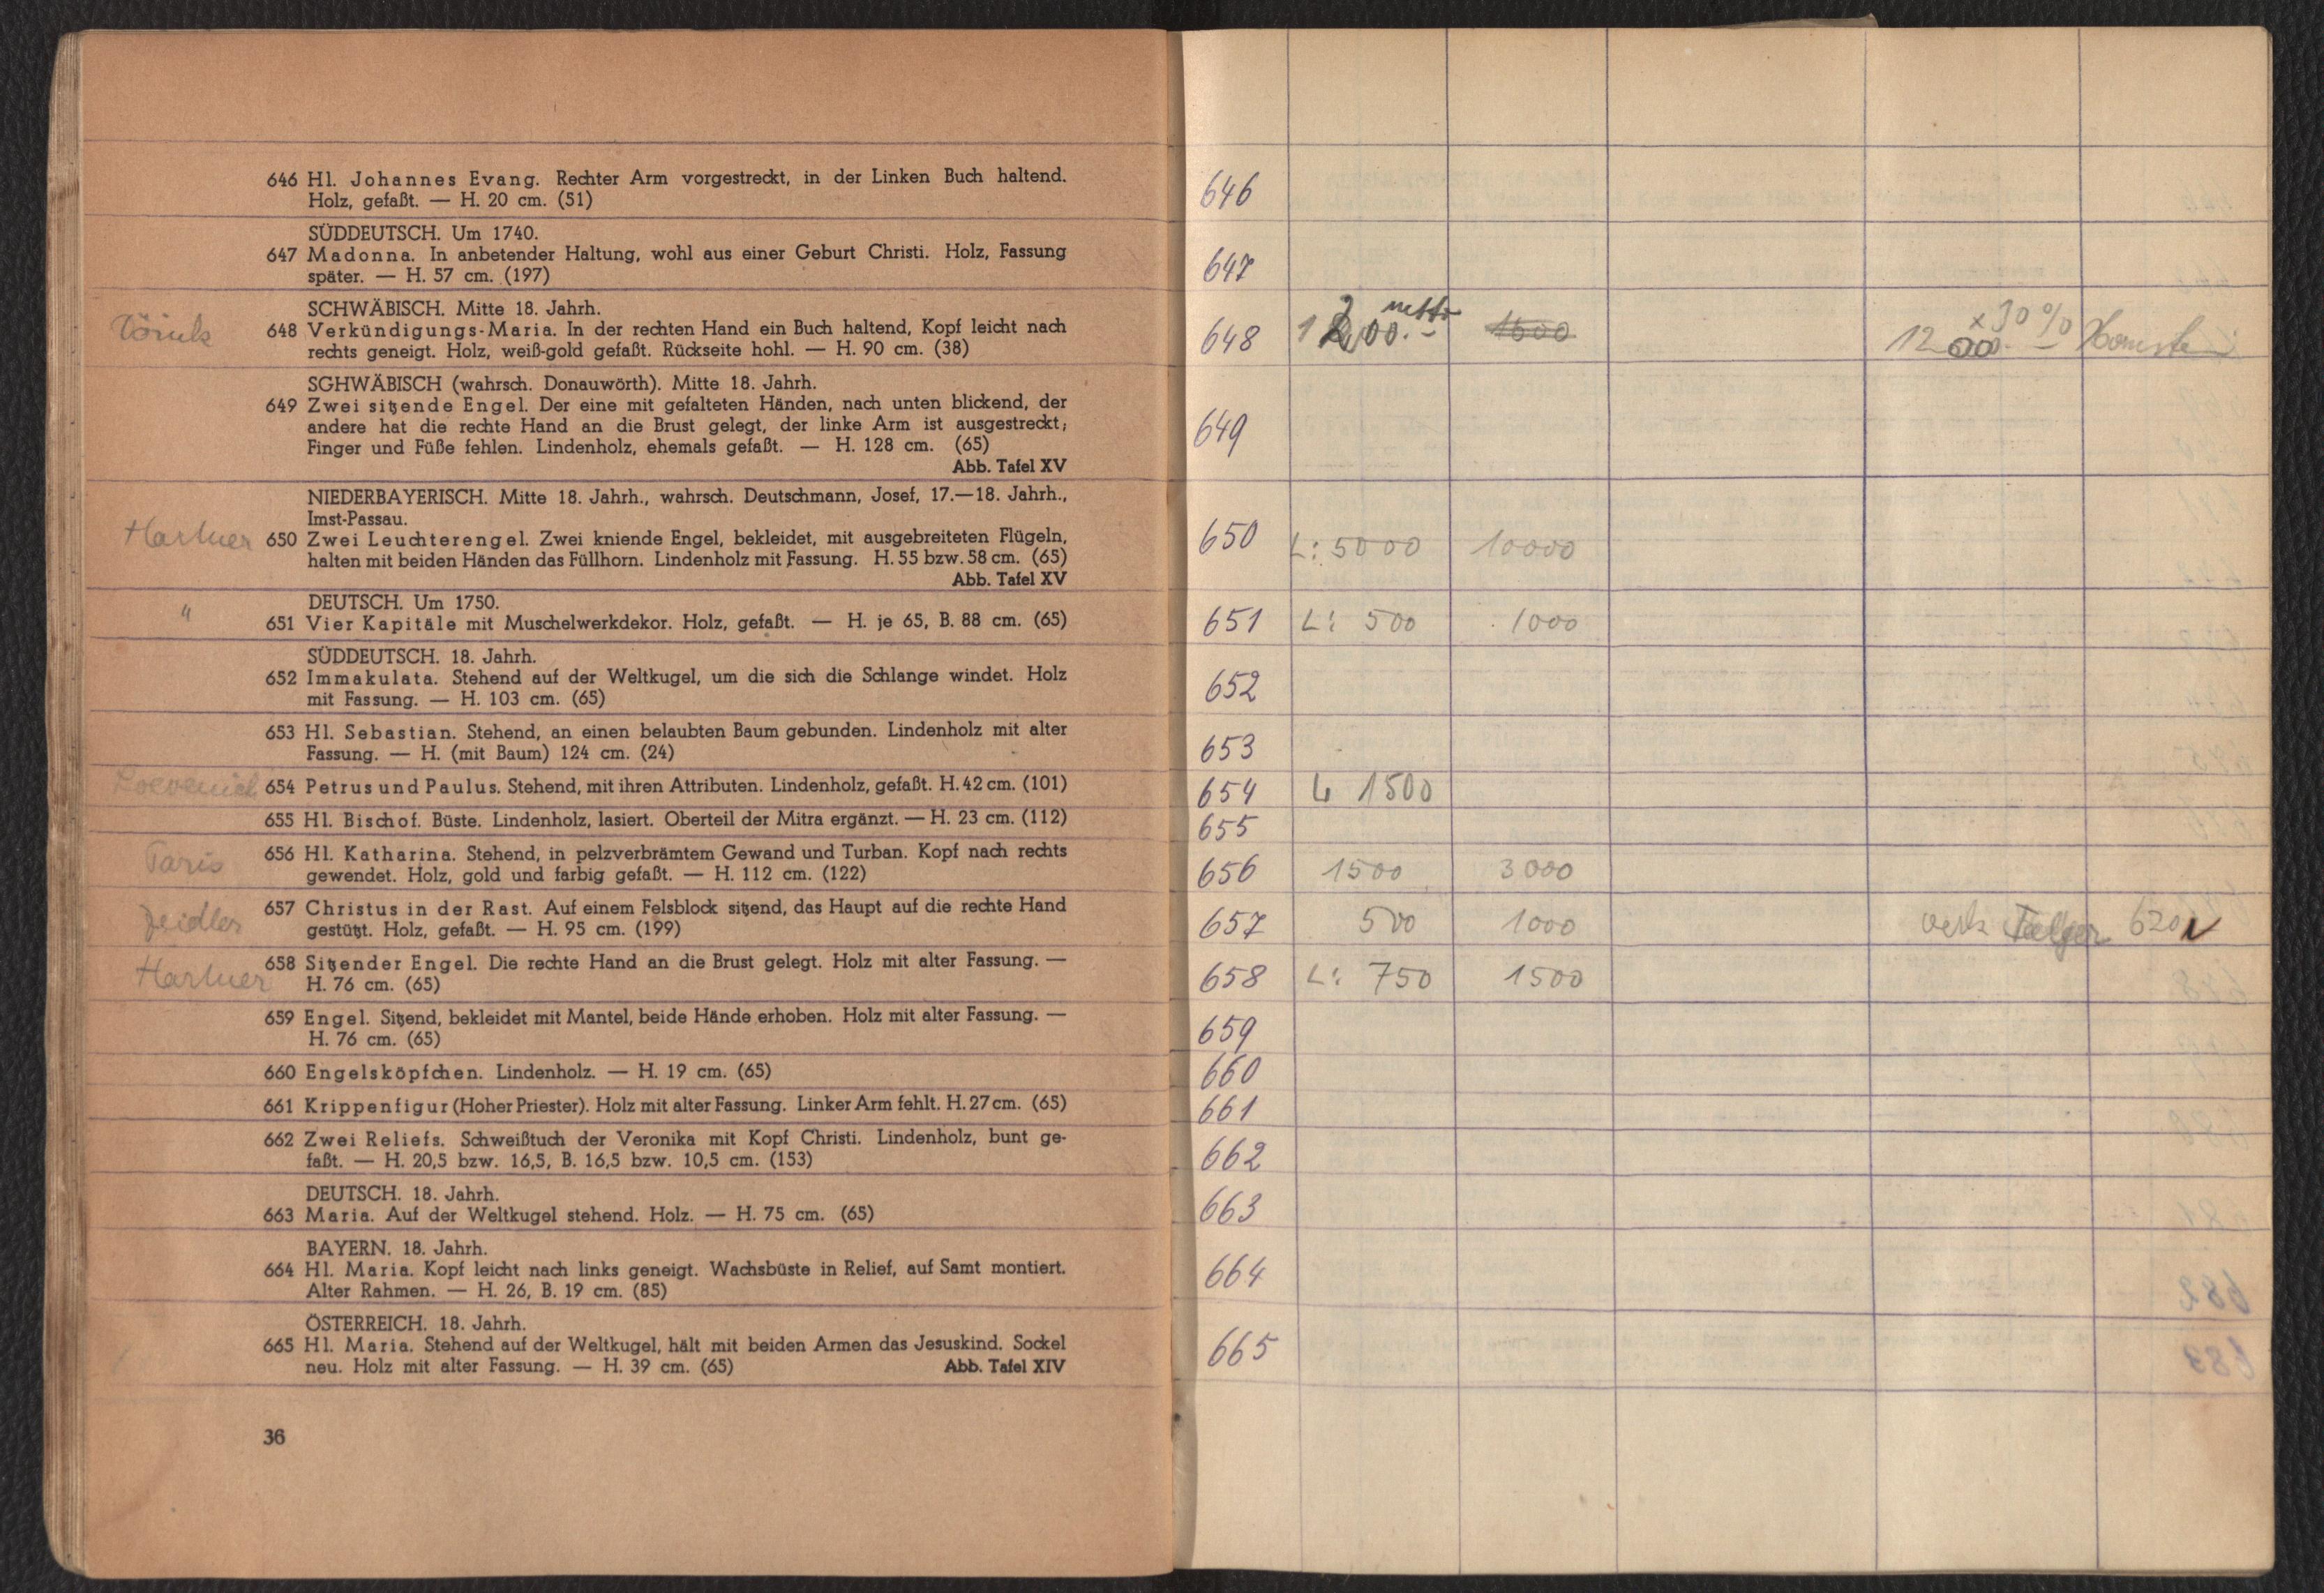 646 Hl. Johannes Evang. Rechter Arm vorgestreckt, in der Linken Buch haltend.
Holz, gefaßt. — H. 20 cm. (51)
SÜDDEUTSCH. Um 1740.
647 Madonna. In anbetender Haltung, wohl aus einer Geburt Christi. Holz, Fassung
später. — H. 57 cm. (197)
SCHWÄBISCH. Mitte 18. Jahrh.
648 Verkündigungs-Maria. In der rechten Hand ein Buch haltend, Kopf leicht nach
rechts geneigt. Holz, weiß-gold gefaßt. Rückseite hohl. — H. 90 cm. (38)
SGHWÄBISCH (wahrsch. Donauwörth). Mitte 18. Jahrh.
649 Zwei sitzende Engel. Der eine mit gefalteten Händen, nach unten blickend, der
andere hat die rechte Hand an die Brust gelegt, der linke Arm ist ausgestreckt;
Finger und Füße fehlen. Lindenholz, ehemals gefaßt. — H. 128 cm. (65)
Abb. Tafel XV
NIEDERBAYERISCH. Mitte 18. Jahrh., wahrsch. Deutschmann, Josef, 17.—18. Jahrh.,
Imst-Passau.
Hartner 650 Zwei Leuchterengel. Zwei kniende Engel, bekleidet, mit ausgebreiteten Flügeln,
halten mit beiden Händen das Füllhorn. Lindenholz mit Fassung. H. 55 bzw. 58 cm. (65)
Abb. Tafel XV
DEUTSCH. Um 1750.
" 651 Vier Kapitäle mit Muschelwerkdekor. Holz, gefaßt. — H. je 65, B. 88 cm. (65)
SÜDDEUTSCH. 18. Jahrh.
652 Immakulata. Stehend auf der Weltkugel, um die sich die Schlange windet. Holz
mit Fassung. — H. 103 cm. (65)
653 Hl. Sebastian. Stehend, an einen belaubten Baum gebunden. Lindenholz mit alter
Fassung. — H. (mit Baum) 124 cm. (24)
Loevenich 654 Petrus und Paulus. Stehend, mit ihren Attributen. Lindenholz, gefaßt. H. 42 cm. (101)
655 Hl. Bischof. Büste. Lindenholz, lasiert. Oberteil der Mitra ergänzt. — H. 23 cm. (112)
Paris 656 Hl. Katharina. Stehend, in pelzverbrämtem Gewand und Turban. Kopf nach rechts
gewendet. Holz, gold und farbig gefaßt. — H. 112 cm. (122)
Zeidler 657 Christus in der Rast. Auf einem Felsblock sitzend, das Haupt auf die rechte Hand
gestützt. Holz, gefaßt. — H. 95 cm. (199)
Hartner 658 Sitzender Engel. Die rechte Hand an die Brust gelegt. Holz mit alter Fassung. —
H. 76 cm. (65)
659 Engel. Sitzend, bekleidet mit Mantel, beide Hände erhoben. Holz mit alter Fassung. —
H. 76 cm. (65)
660 Engelsköpfchen. Lindenholz. — H. 19 cm. (65)
661 Krippenfigur (Hoher Priester). Holz mit alter Fassung. Linker Arm fehlt. H. 27 cm. (65)
662 Zwei Reliefs. Schweißtuch der Veronika mit Kopf Christi. Lindenholz, bunt ge-
faßt. — H. 20,5 bzw. 16,5, B. 16,5 bzw. 10,5 cm. (153)
DEUTSCH. 18. Jahrh.
663 Maria. Auf der Weltkugel stehend. Holz. — H. 75 cm. (65)
BAYERN. 18. Jahrh.
664 Hl. Maria. Kopf leicht nach links geneigt. Wachsbüste in Relief, auf Samt montiert.
Alter Rahmen. — H. 26, B. 19 cm. (85)
ÖSTERREICH. 18. Jahrh.
665 Hl. Maria. Stehend auf der Weltkugel, hält mit beiden Armen das Jesuskind. Sockel
neu. Holz mit alter Fassung. — H. 39 cm. (65) Abb. Tafel XIV
36
646
647
648 1200.- netto 1600 1200.- x 30%
649
650 L: 5000 10000
651 L: 500 1000
652
653
654 L 1500
655
656 1500 3000
657 500 1000 verk 620
658 L: 750 1500
659
660
661
662
663
664
665